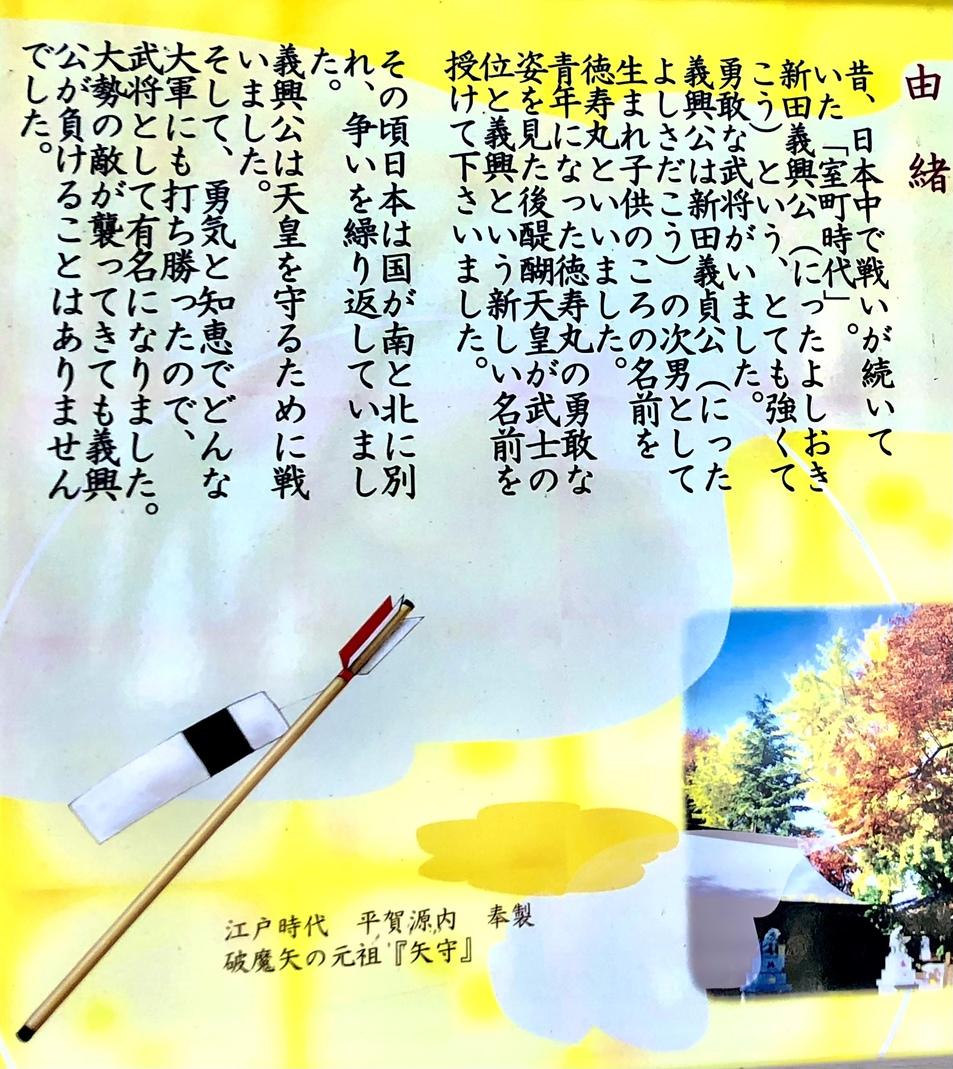 由緒
昔、日本中で戦いが続いて
いた「室町時代」。
新田義興公（にったよしおき
こう）という、とても強くて
勇敢な武将がいました。
義興公は新田義貞公（にった
よしさだこう）の次男として
生まれ子供のころの名前を
徳寿丸といいました。
青年になった徳寿丸の勇敢な
姿を見た後醍醐天皇が武士の
位と義興という新しい名前を
授けて下さいました。
その頃日本は国が南と北に別
れ、争いを繰り返していまし
た。
義興公は天皇を守るために戦
いました。
そして、勇気と知恵でどんな
大軍にも打ち勝ったので、
武将として有名になりました。
大勢の敵が襲ってきても義興
公が負けることはありません
でした。
江戸時代　平賀源内　奉製
破魔矢の元祖『矢守』